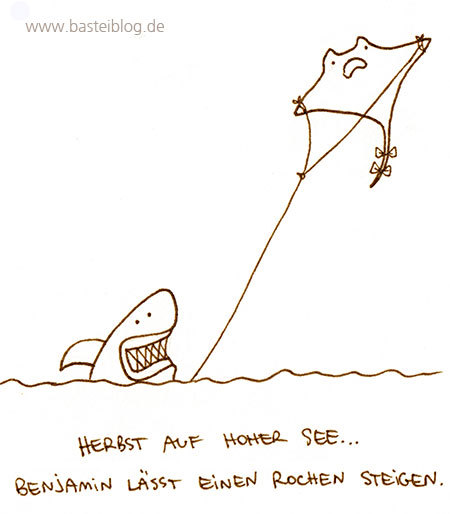 www.basteiblog.de
HERBST AUF HOHER SEE...
BENJAMIN LÄSST EINEN ROCHEN STEIGEN.